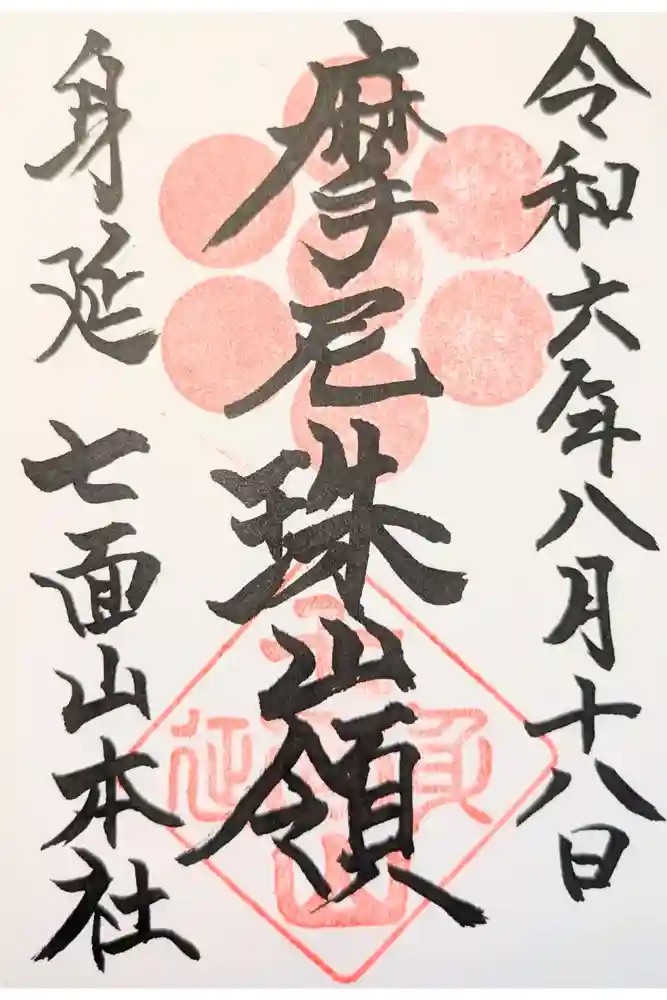 令和六年八月十八日
摩尼珠嶺
身延 七面山本社